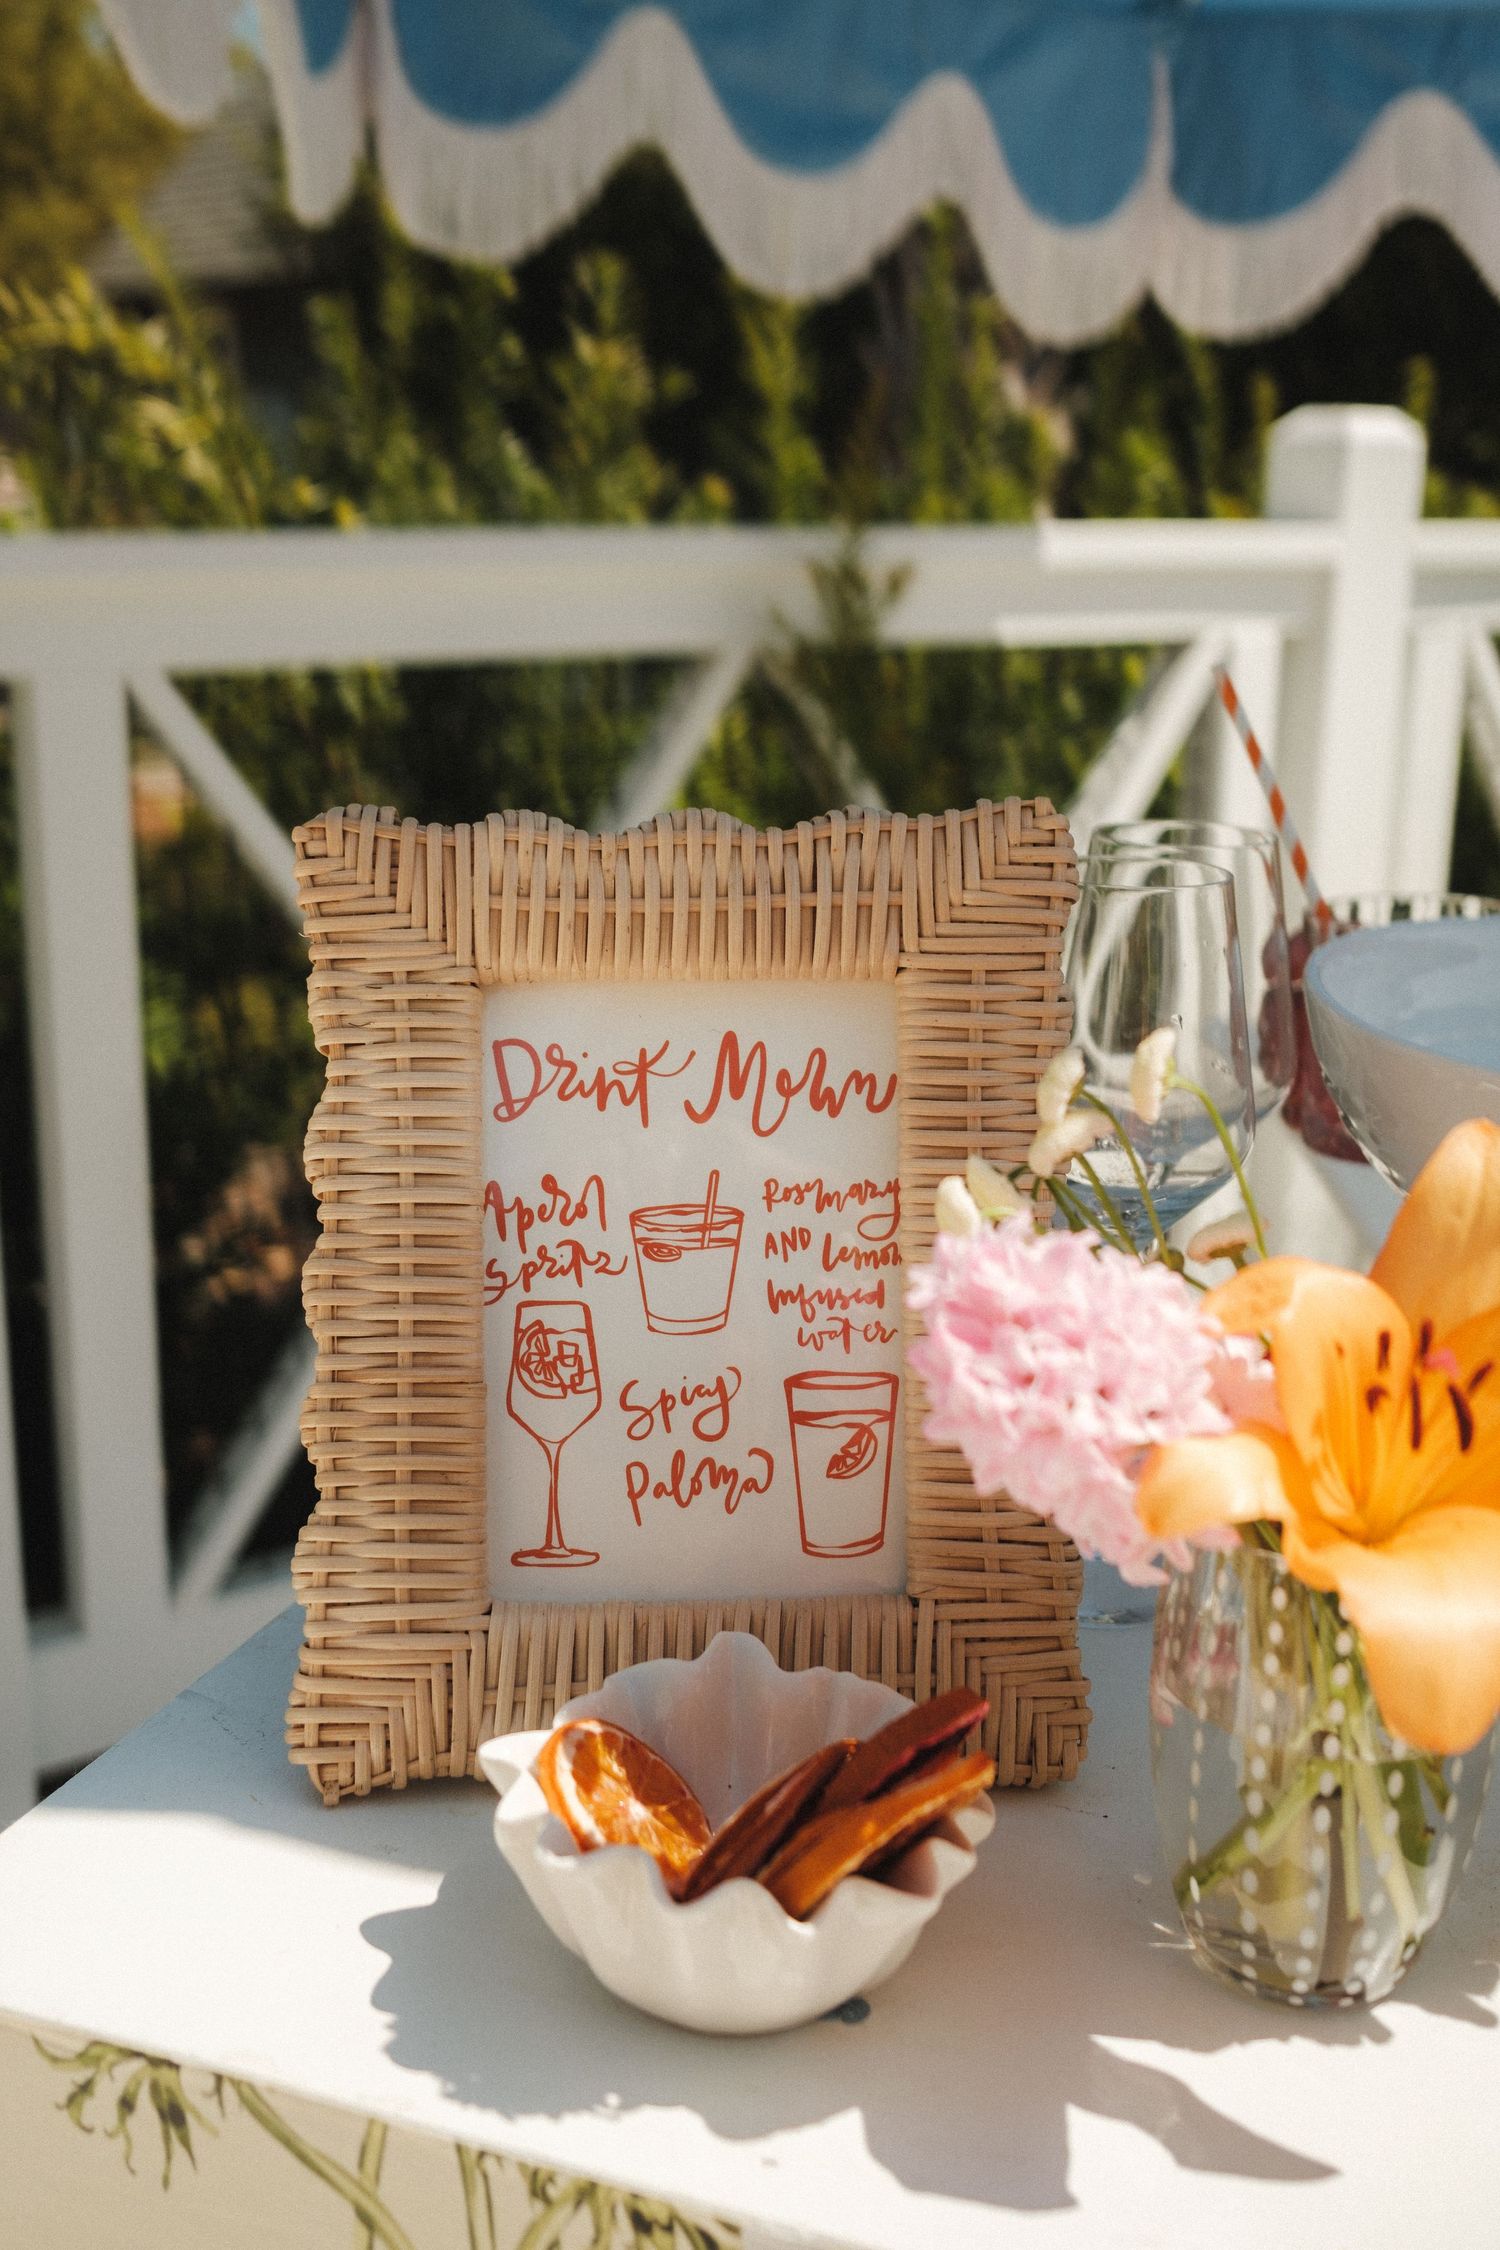 Drink Menu
Aperol
Spritz
Spicy
Paloma
Rosemary
AND Lemon
Infused
water